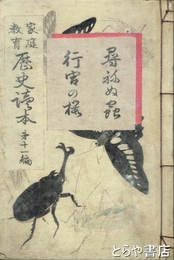 家庭教育
歴史読本
第十一編
尋ねぬ蟲
行宮の桜
とらや書店